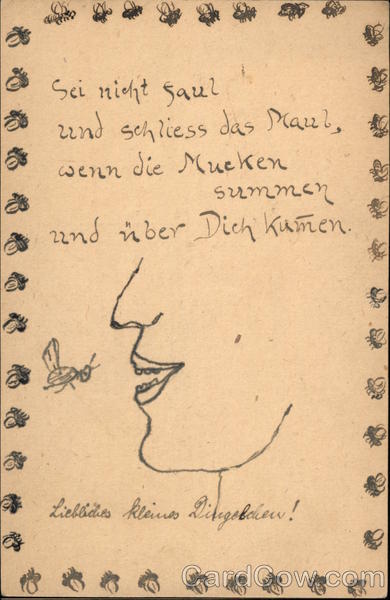 Sei nicht faul
und schliess das Maul,
wenn die Mucken
summen
und über Dich kum̄en.
Liebliches kleines Dingelchen!
CardCow.com